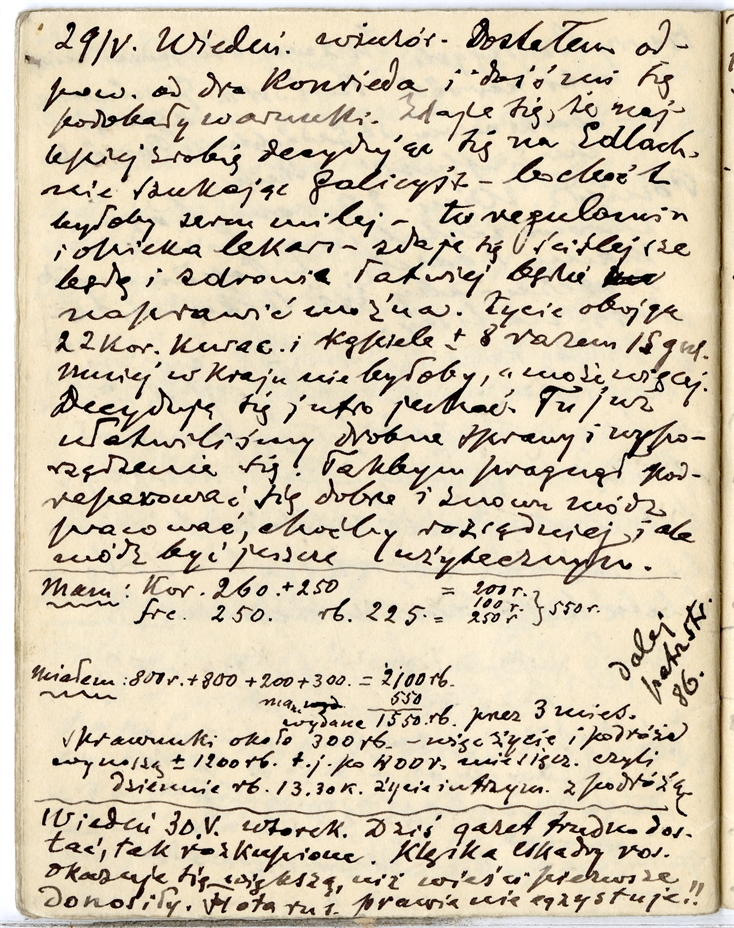 29/V. Wiedeń. wieczór. Dostałem od-
pow. od dra Konrieda i dość mi się
podobały warunki. Zdaje się, że naj-
lepiej zrobię decydując się na Edlach,
nie szukając Galicyi - bo choć t
byłoby sercu milej - tu regulamin
i opieka lekars- zdaje się ściślejsze
będą i zdrowie łatwiej będzie
naprawić można. Życie obojga
22 Kor. Kurac. i kąpiele ± 8 razem 15 gul.
Mniej w kraju nie byłoby, a może więcej.
Decydują się jutro jechać. Tu już
ułatwiliśmy drobne sprawy i wypo-
rządzenie się. Takbym pragnął pod-
reparować się dobrze i znowu módz
pracować, choćby rozsądniej, ale
módz być jeszcze użytecznym.
Mam: Kor. 260. + 250 = 200 r.
100 r. } 550 r.
frc. 250. rb. 225. = 250 r
Dalej
patrz str.
86.
Miałem: 800 r. + 800 + 200 + 300. = 2100 rb.
550
wydane 1550 rb. przez 3 mies.
Sprawunki około 300 rb. - więc życie i podróże
wynoszą ± 1200 rb. t. j. po 400 r. miesięcz. czyli
dziennie rb. 13.30 k. życie i utrzym. z podróżą
Wiedeń 30.V. wtorek. Dziś gazet trudno dos-
tać, tak rozkupione. Klęska eskadry ros.
okazuje się większą, niż wieści pierwsze
donosiły. Flota rus. prawie nie egzystuje!!